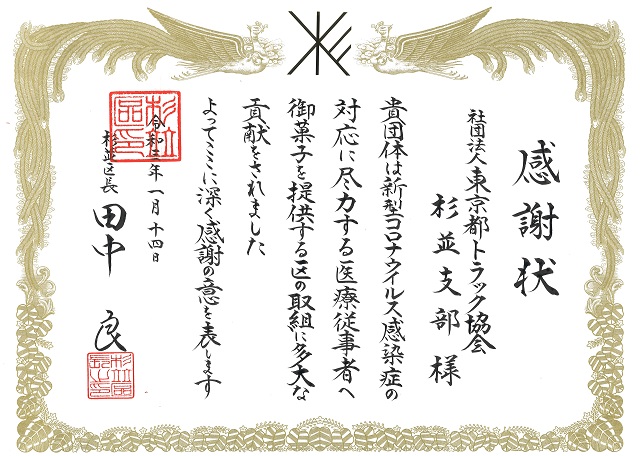 感謝状
社団法人東京都トラック協会
杉並支部様
貴団体は新型コロナウイルス感染症の
対応に尽力する医療従事者へ
御菓子を提供する区の取組に多大な
貢献をされました
よってここに深く感謝の意を表します
令和三年一月十四日
杉並区長 田中良
杉並区印